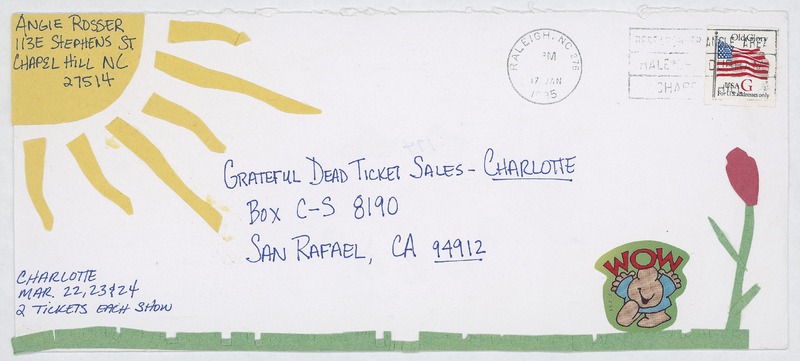 ANGIE ROSSER
113E STEPHENS ST
CHAPEL HILL NC
27514
RALEIGH, NC 276
PM
17 JAN
1995
Old Glory
USA G
For U.S. addresses only
GRATEFUL DEAD TICKET SALES - CHARLOTTE
BOX C-S 8190
SAN RAFAEL, CA 94912
WOW
CHARLOTTE
MAR. 22, 23 & 24
2 TICKETS EACH SHOW